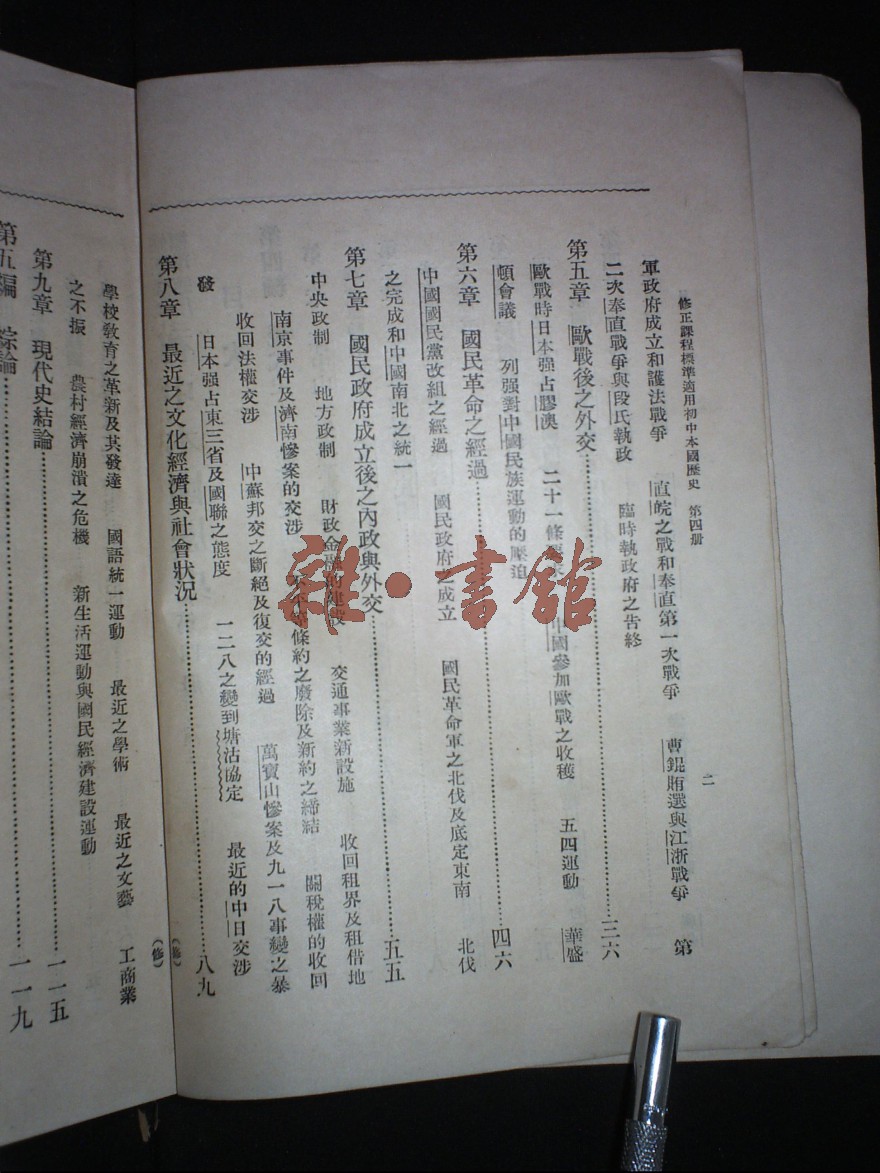 修正課程標準適用初中本國歷史 第四册 二
軍政府成立和護法戰爭 直皖之戰和奉直第一次戰爭 曹錕賄選與江浙戰爭 第
二次奉直戰爭與段氏執政 臨時執政府之告終
第五章 歐戰後之外交……三六
歐戰時日本强占膠澳 二十一條 中國參加歐戰之收穫 五四運動 華盛
頓會議 列强對中國民族運動的壓迫
第六章 國民革命之經過……四六
中國國民黨改組之經過 國民政府 成立 國民革命軍之北伐及底定東南 北伐
之完成和中國南北之統一
第七章 國民政府成立後之內政與外交……五五
中央政制 地方政制 財政金融 建設 交通事業新設施 收回租界及租借地
南京事件及濟南慘案的交涉 條約之廢除及新約之締結 關稅權的收回
收回法權交涉 中蘇邦交之斷絕及復交的經過 萬寶山慘案及九一八事變之暴
發 日本强占東三省及國聯之態度 一二八之變到塘沽協定 最近的中日交涉
第八章 最近之文化經濟與社會狀況……八九
(修)
(修)
學校敎育之革新及其發達 國語統一運動 最近之學術 最近之文藝 工商業
之不振 農村經濟崩潰之危機 新生活運動與國民經濟建設運動
第九章 現代史結論……一一五
第五編 綜論……一一九
雜·書館